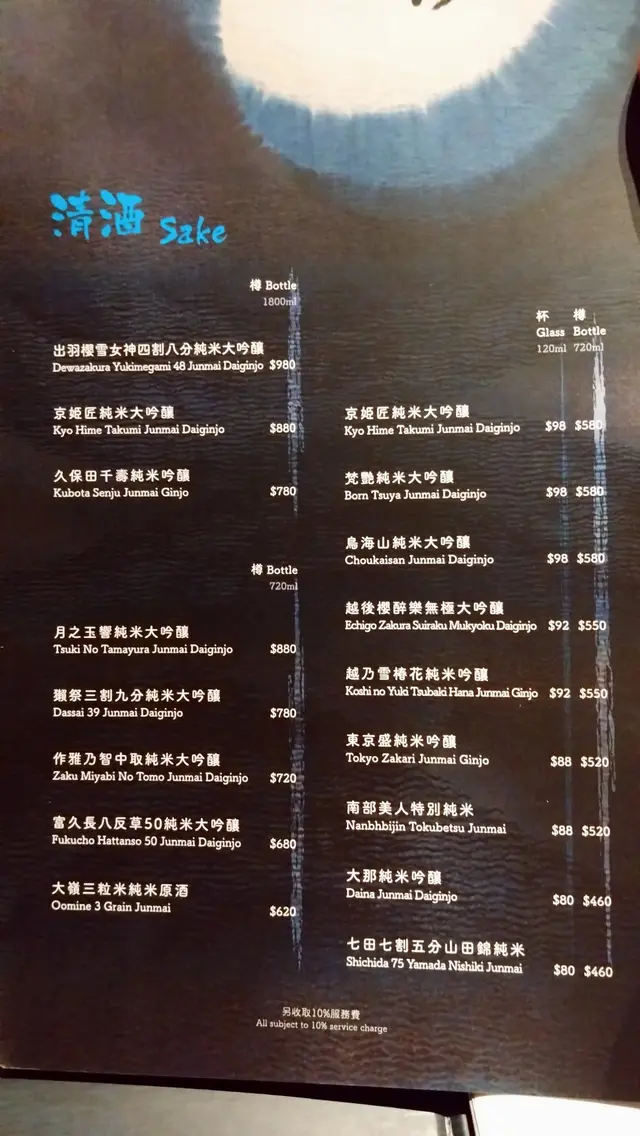 清酒 Sake
樽 Bottle
1800ml
出羽櫻雪女神四割八分純米大吟釀
Dewazakura Yukimegami 48 Junmai Daiginjo $980
京姫匠純米大吟釀
Kyo Hime Takumi Junmai Daiginjo $880
久保田千壽純米吟釀
Kubota Senju Junmai Ginjo $780
樽 Bottle
720ml
月之玉響純米大吟釀
Tsuki No Tamayura Junmai Daiginjo $880
獺祭三割九分純米大吟釀
Dassai 39 Junmai Daiginjo $780
作雅乃智中取純米大吟釀
Zaku Miyabi No Tomo Junmai Daiginjo $720
富久長八反草50純米大吟釀
Fukucho Hattanso 50 Junmai Daiginjo $680
大嶺三粒米純米原酒
Oomine 3 Grain Junmai $620
杯 樽
Glass Bottle
120ml 720ml
京姫匠純米大吟釀
Kyo Hime Takumi Junmai Daiginjo $98 $580
梵艷純米大吟釀
Born Tsuya Junmai Daiginjo $98 $580
鳥海山純米大吟釀
Choukaisan Junmai Daiginjo $98 $580
越後櫻醉樂無極大吟釀
Echigo Zakura Suiraku Mukyoku Daiginjo $92 $550
越乃雪椿花純米吟釀
Koshi no Yuki Tsubaki Hana Junmai Ginjo $92 $550
東京盛純米吟釀
Tokyo Zakari Junmai Ginjo $88 $520
南部美人特別純米
Nanbhbijin Tokubetsu Junmai $88 $520
大那純米吟釀
Daina Junmai Daiginjo $80 $460
七田七割五分山田錦純米
Shichida 75 Yamada Nishiki Junmai $80 $460
另收取10%服務費
All subject to 10% service charge